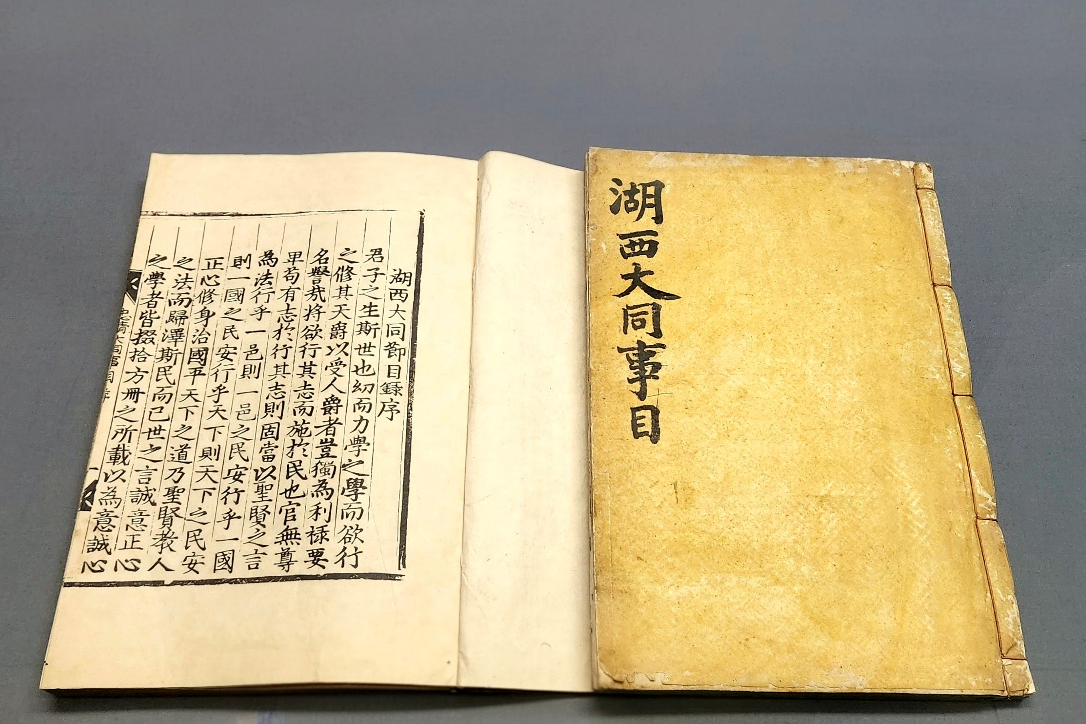 湖西大同事目
湖西大同節目錄序
君子之生斯世也幼而力學之學而欲行
之修其天爵以受人爵者豈獨為利祿要
名譽哉將欲行其志而施於民也官無尊
卑苟有志於行其志則固當以聖賢之言
為法行乎一邑則一邑之民安行乎一國
則一國之民安行乎天下則天下之民安
正心修身治國平天下之道乃聖賢教人
之法而歸澤斯民而已世之言誠意正心
之學者皆掇拾方冊之所載以為意誠心
大同事目